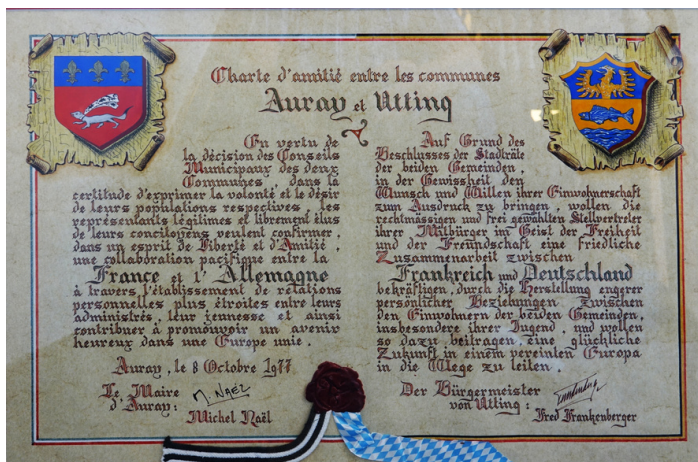 Charte d'amitié entre les communes
Auray et Utting
En vertu de
la décision des Conseils
Municipaux des deux
Communes, dans la
certitude d'exprimer la volonté et le désir
de leurs populations respectives, les
représentants légitimes et librement élus
de leurs concitoyens veulent confirmer,
dans un esprit de Liberté et d'Amitié,
une collaboration pacifique entre la
France et l'Allemagne
à travers l'établissement de relations
personnelles plus étroites entre leurs
administrés, leur jeunesse et ainsi
contribuer à promouvoir un avenir
heureux dans une Europe unie.
Auray, le 8 Octobre 1977
Le Maire
d'Auray:
M. NAËL
Michel Naël
Auf Grund des
Beschlusses der Stadträte
der beiden Gemeinden,
in der Gewissheit den
Wunsch und Willen ihrer Einwohnerschaft
zum Ausdruck zu bringen, wollen die
rechtmässigen und frei gewählten Stellvertreter
ihrer Mitbürger im Geist der Freiheit
und der Freundschaft eine friedliche
Zusammenarbeit zwischen
Frankreich und Deutschland
bekräftigen, durch die Herstellung engerer
persönlicher Beziehungen zwischen
den Einwohnern der beiden Gemeinden,
insbesondere ihrer Jugend, und wollen
so dazu beitragen, eine glückliche
Zukunft in einem vereinten Europa
in die Wege zu leiten.
Der Bürgermeister
von Utting:
Fred Frankenberger